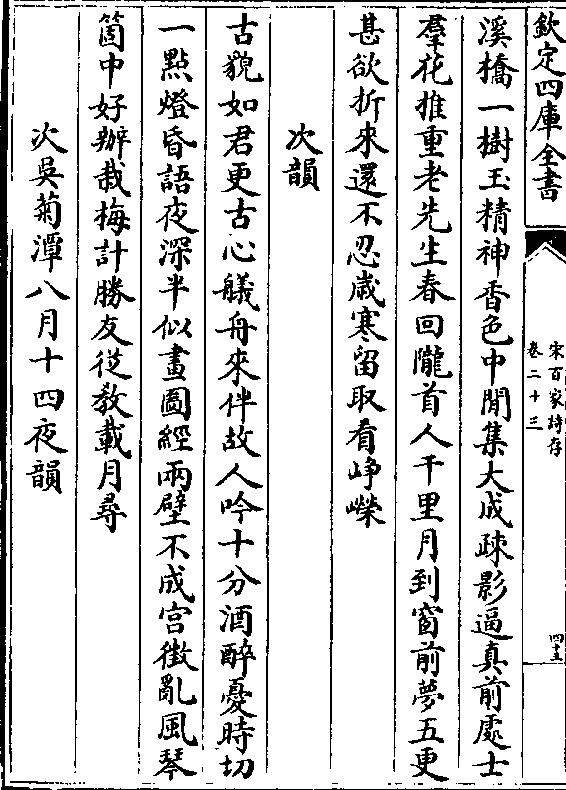 欽定四庫全書
宋百家詩存
卷二十三
四十五
溪橋一樹玉精神香色中閒集大成疎影逼真前處士
羣花推重老先生春回隴首人千里月到窗前夢五更
甚欲折來還不忍歳寒留取看崢嶸
次韻
古貌如君更古心艤舟來伴故人吟十分酒醉憂時切
一點燈昏語夜深半似畫圖經兩壁不成宫徴亂風琴
箇中好辦栽梅計勝友從教載月尋
次吳菊潭八月十四夜韻